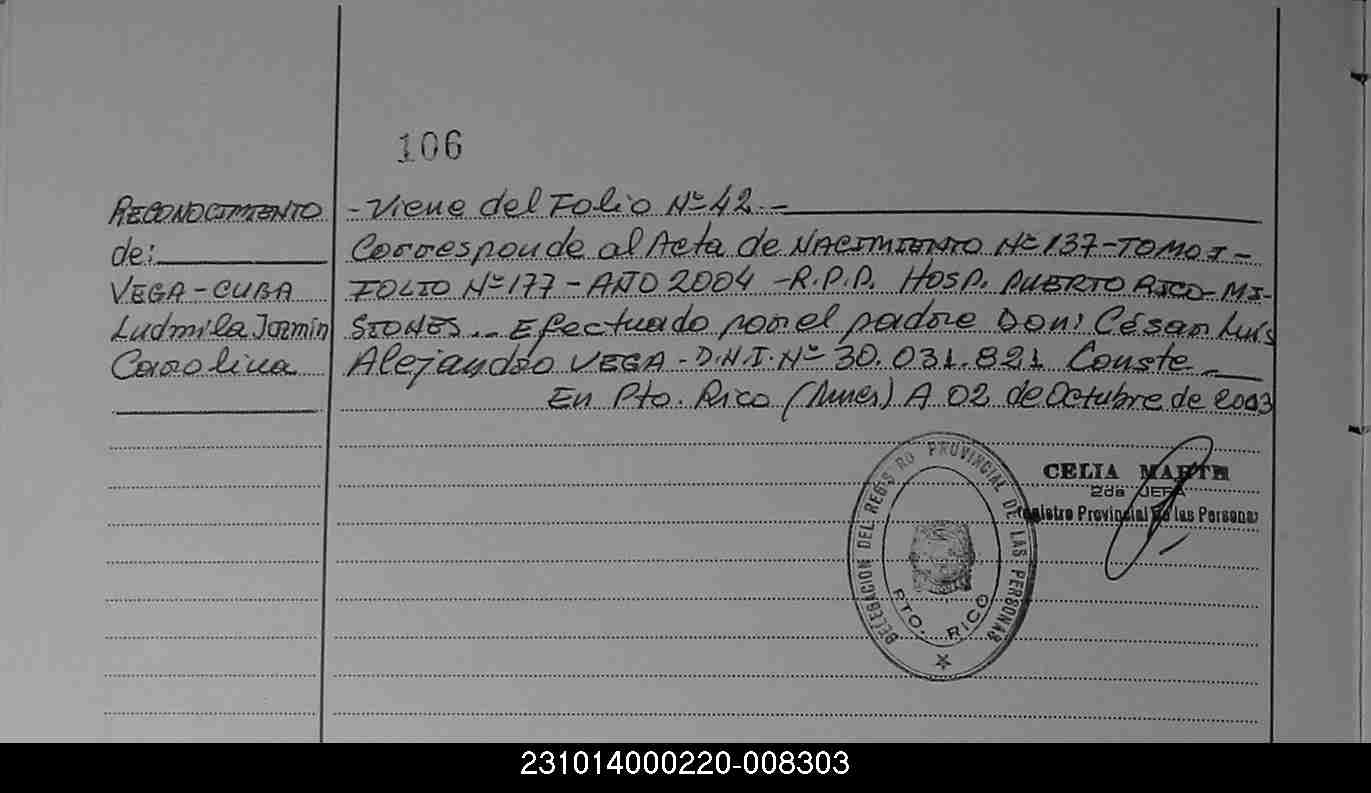 106
RECONOCIMIENTO
de:
VEGA - CUBA
Ludmila Jazmin
Carolina
- Viene del Folio Nº 42. -
Corresponde al Acta de NACIMIENTO Nº 137 - TOMO I -
FOLIO Nº 177 - AÑO 2004 - R.P.P. HOSP. PUERTO RICO - MI-
SIONES. - Efectuado por el padre Don: César Luis
Alejandro VEGA - D.N.I. Nº 30.031.821 Conste. -
En Pto. Rico (Mnes) A 02 de Octubre de 2003
CELIA
2da JEFA
Registro Provincial de las Personas
DELEGACION DEL REGISTRO PROVINCIAL DE LAS PERSONAS
PTO. RICO
231014000220-008303